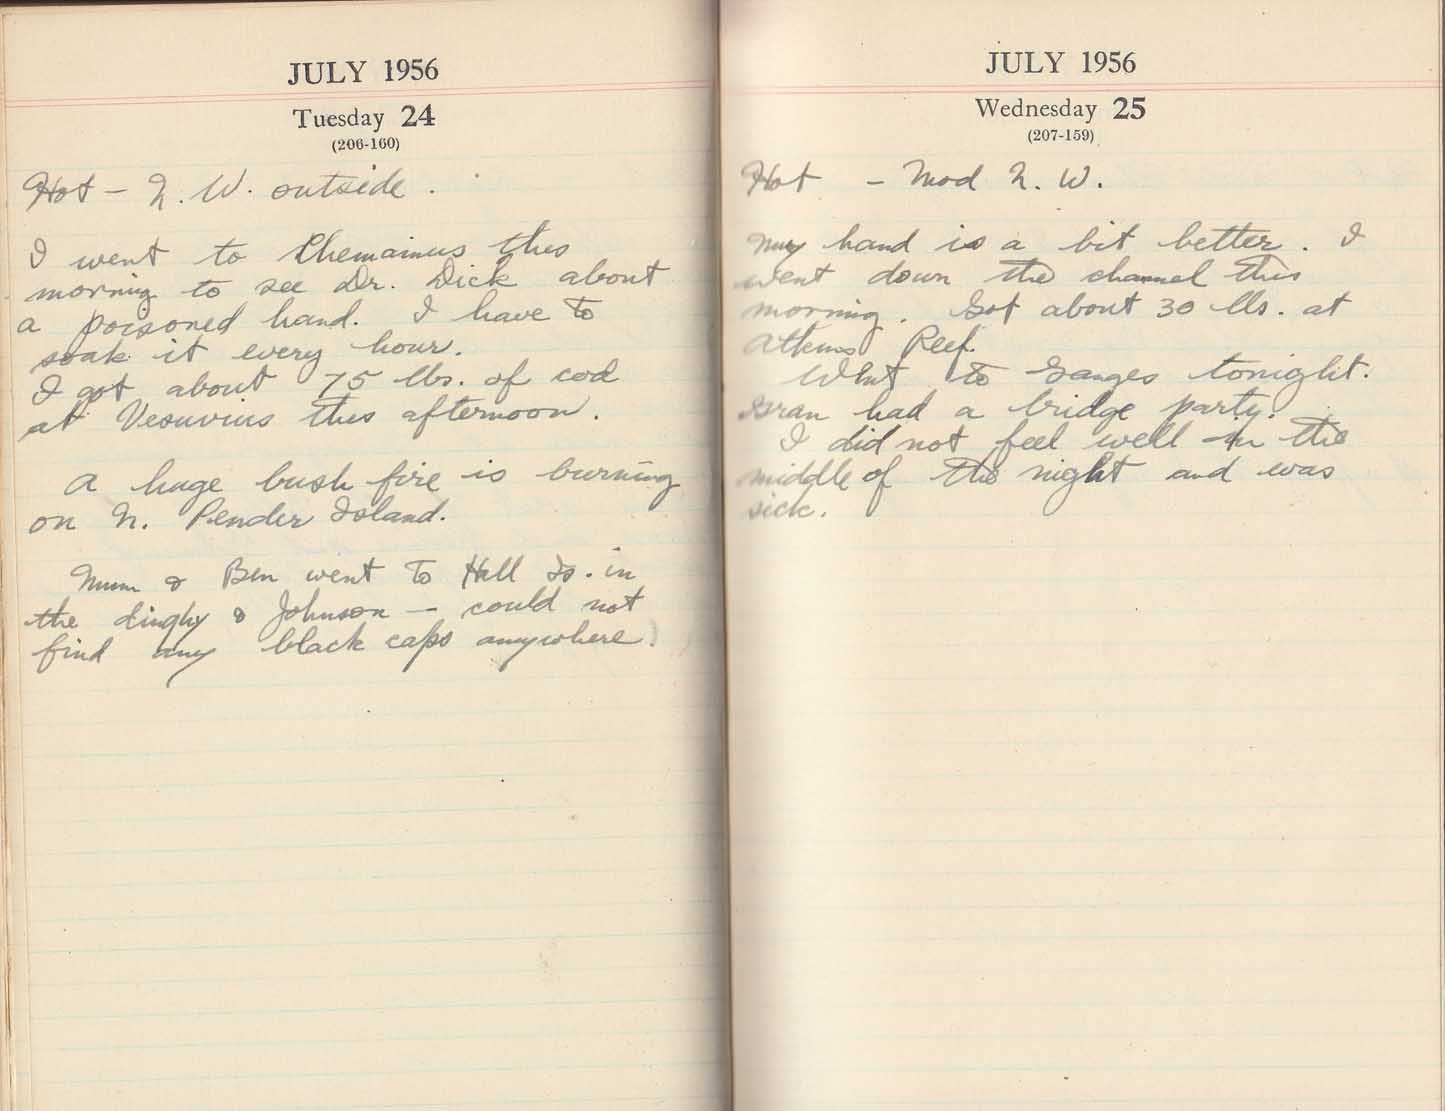 JULY 1956
Tuesday 24
(206-160)
Hot - N. W. outside.
I went to Chemainus this
morning to see Dr. Dick about
a poisoned hand. I have to
soak it every hour.
I got about 75 lbs. of cod
at Vesuvius this afternoon.
A huge bush fire is burning
on N. Pender Island.
Mum & Ben went to Hall Is. in
the dinghy & Johnson - could not
find any black caps anywhere.
JULY 1956
Wednesday 25
(207-159)
Hot - Mod N. W.
My hand is a bit better. I
went down the channel this
morning. Got about 30 lbs. at
Atkins Reef.
Went to Ganges tonight.
Gran had a bridge party.
I did not feel well in the
middle of the night and was
sick.